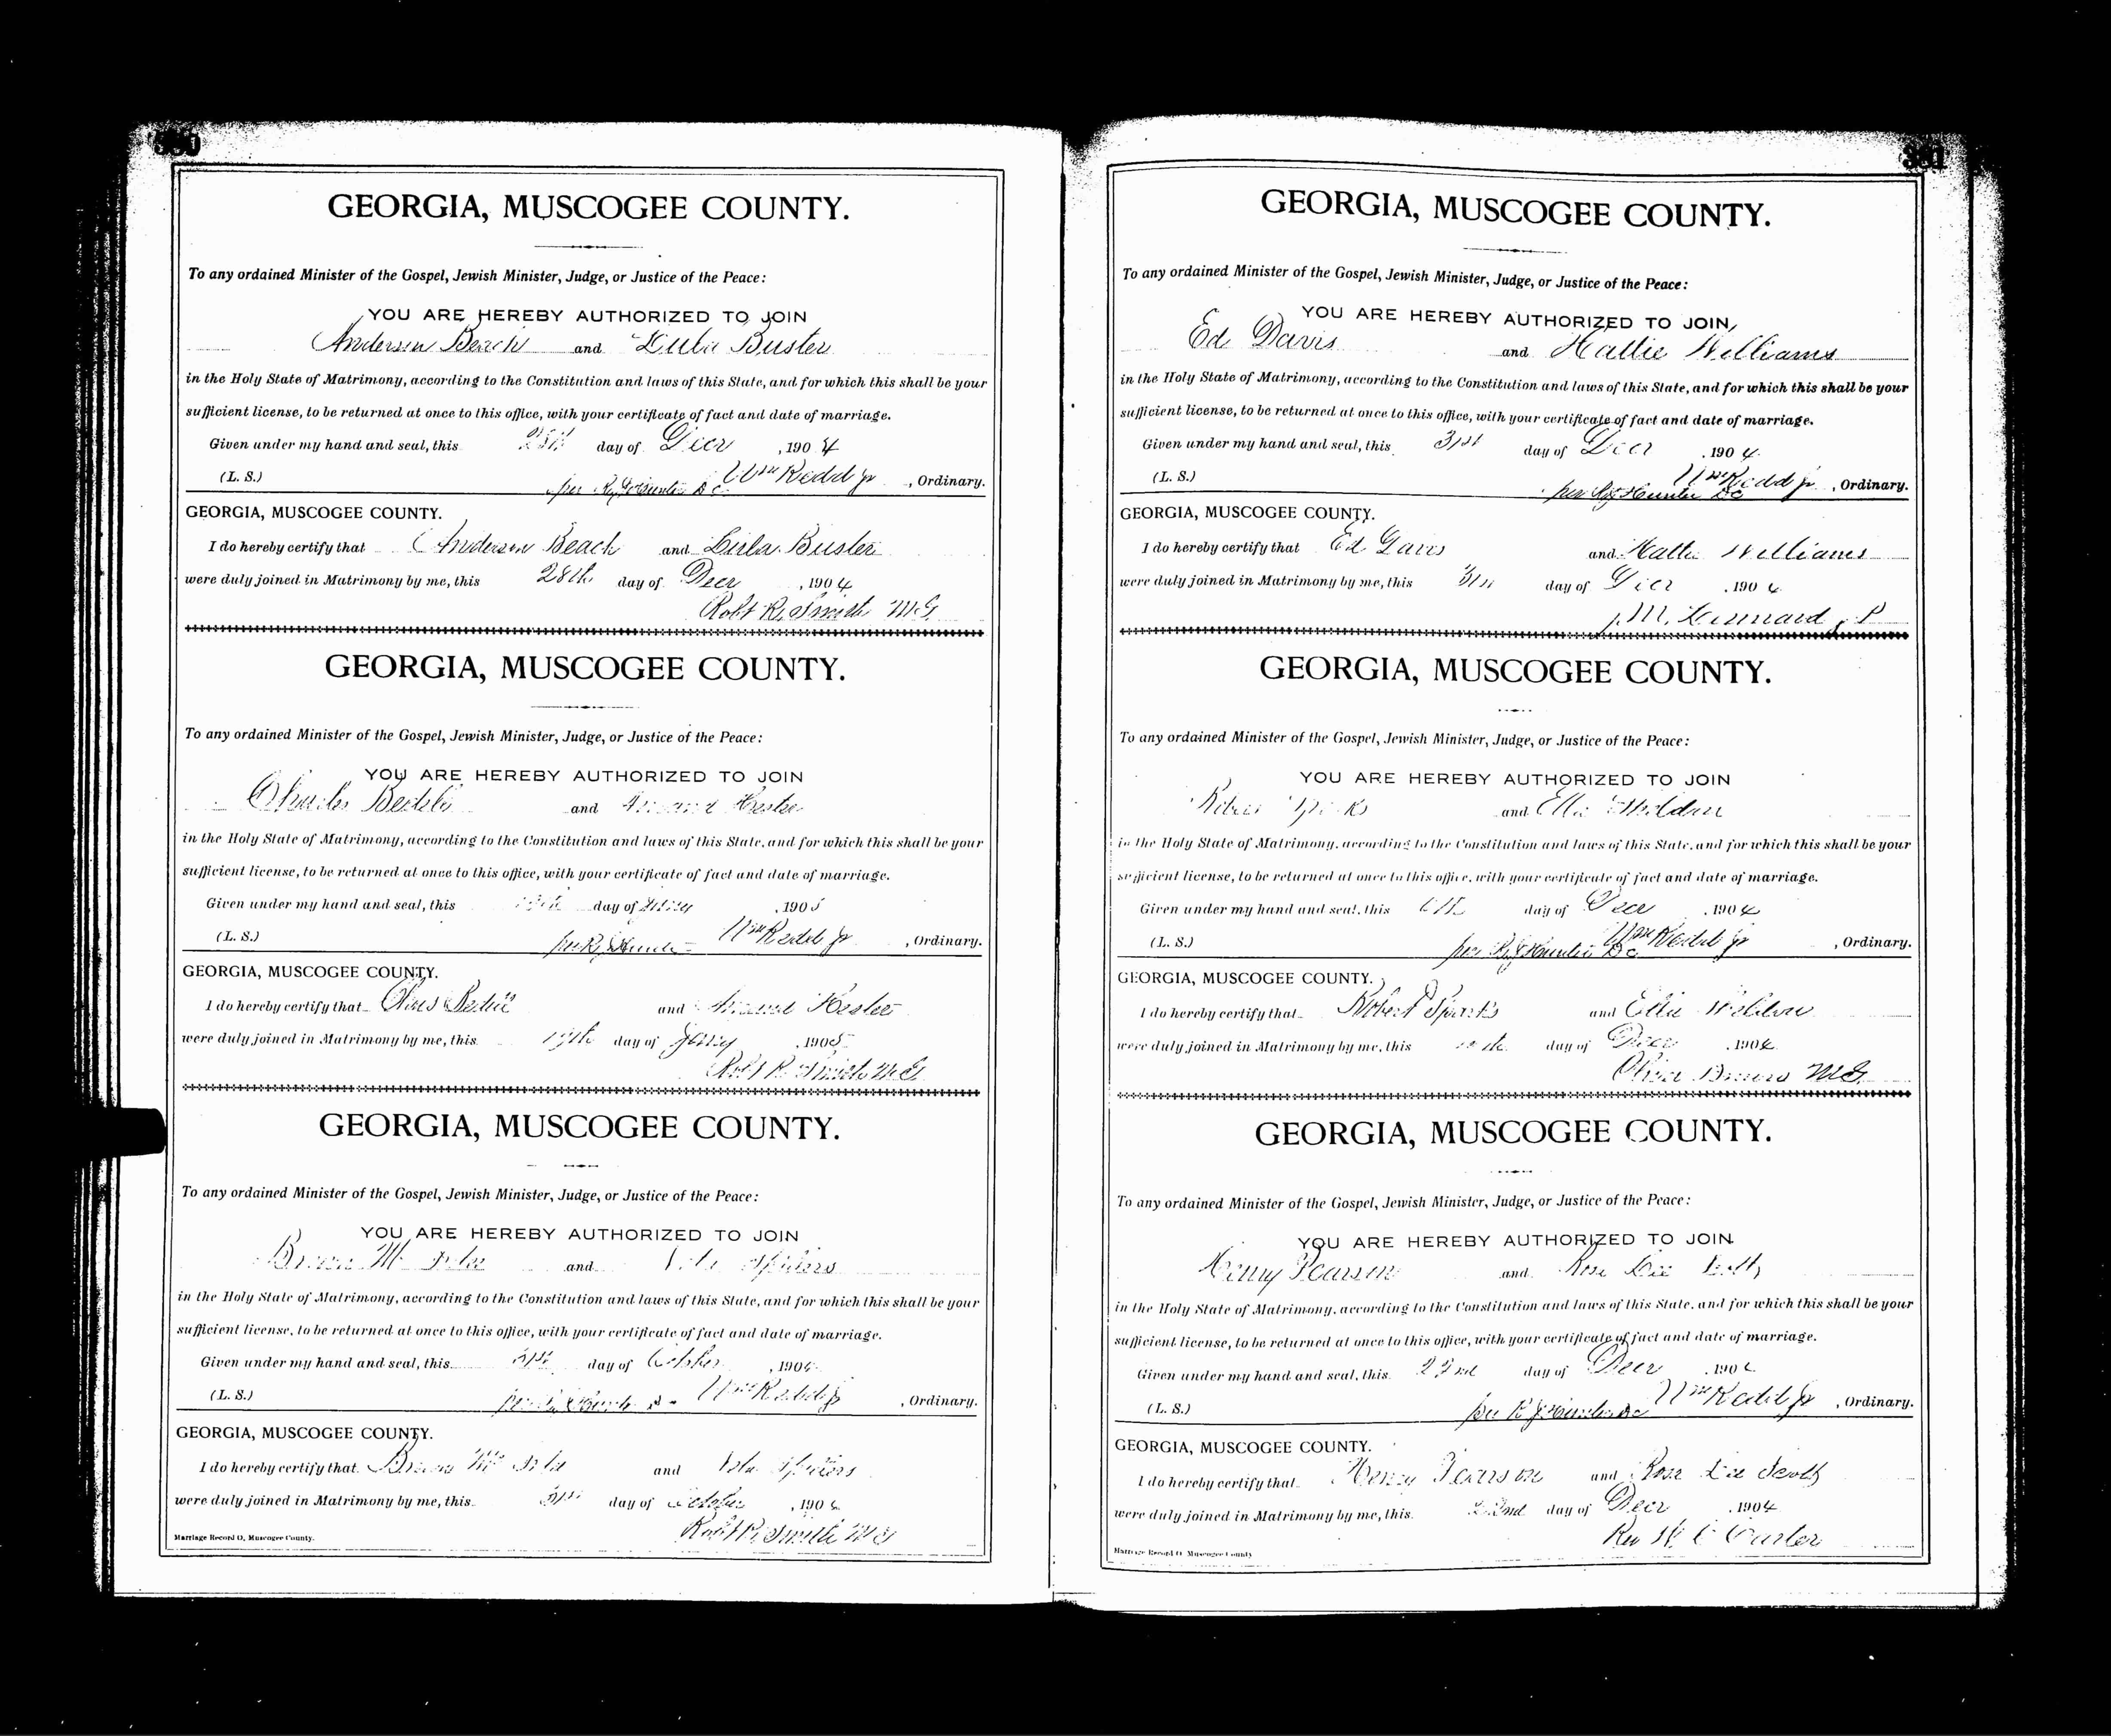 GEORGIA, MUSCOGEE COUNTY.
To any ordained Minister of the Gospel, Jewish Minister, Judge, or Justice of the Peace:
YOU ARE HEREBY AUTHORIZED TO JOIN
Anderson Beach and Lula Buster
in the Holy State of Matrimony, according to the Constitution and laws of this State, and for which this shall be your
sufficient license, to be returned at once to this office, with your certificate of fact and date of marriage.
Given under my hand and seal, this day of Decr , 1904
(L. S.) per R J Hunter DC Wm Redd Jr , Ordinary.
GEORGIA, MUSCOGEE COUNTY.
I do hereby certify that Anderson Beach and Lula Buster
were duly joined in Matrimony by me, this 28th day of Decr , 1904
Robt R. Smith M.G.
GEORGIA, MUSCOGEE COUNTY.
To any ordained Minister of the Gospel, Jewish Minister, Judge, or Justice of the Peace:
YOU ARE HEREBY AUTHORIZED TO JOIN
Charles and
in the Holy State of Matrimony, according to the Constitution and laws of this State, and for which this shall be your
sufficient license, to be returned at once to this office, with your certificate of fact and date of marriage.
Given under my hand and seal, this day of , 1905
(L. S.) per R J Hunter Wm Redd Jr , Ordinary.
GEORGIA, MUSCOGEE COUNTY.
I do hereby certify that Chas and
were duly joined in Matrimony by me, this day of Jany , 1905
Robt R. Smith M.G.
GEORGIA, MUSCOGEE COUNTY.
To any ordained Minister of the Gospel, Jewish Minister, Judge, or Justice of the Peace:
YOU ARE HEREBY AUTHORIZED TO JOIN
and
in the Holy State of Matrimony, according to the Constitution and laws of this State, and for which this shall be your
sufficient license, to be returned at once to this office, with your certificate of fact and date of marriage.
Given under my hand and seal, this 31st day of October , 1904
(L. S.) Wm Redd Jr , Ordinary.
GEORGIA, MUSCOGEE COUNTY.
I do hereby certify that and
were duly joined in Matrimony by me, this 31st day of October , 1904
Robt R. Smith M G
Marriage Record O, Muscogee County.
GEORGIA, MUSCOGEE COUNTY.
To any ordained Minister of the Gospel, Jewish Minister, Judge, or Justice of the Peace:
YOU ARE HEREBY AUTHORIZED TO JOIN
Ed Davis and Hattie Williams
in the Holy State of Matrimony, according to the Constitution and laws of this State, and for which this shall be your
sufficient license, to be returned at once to this office, with your certificate of fact and date of marriage.
Given under my hand and seal, this 31st day of Decr , 1904
(L. S.) per R J Hunter DC Wm Redd Jr , Ordinary.
GEORGIA, MUSCOGEE COUNTY.
I do hereby certify that Ed Davis and Hattie Williams
were duly joined in Matrimony by me, this 31st day of Decr , 1904
J. M. Lennard J P
GEORGIA, MUSCOGEE COUNTY.
To any ordained Minister of the Gospel, Jewish Minister, Judge, or Justice of the Peace:
YOU ARE HEREBY AUTHORIZED TO JOIN
Robert Sparks and Ella
in the Holy State of Matrimony, according to the Constitution and laws of this State, and for which this shall be your
sufficient license, to be returned at once to this office, with your certificate of fact and date of marriage.
Given under my hand and seal, this day of Decr , 1904
(L. S.) per R J Hunter DC Wm Redd Jr , Ordinary.
GEORGIA, MUSCOGEE COUNTY.
I do hereby certify that Robert Sparks and Ella
were duly joined in Matrimony by me, this day of Decr , 1904
Oliver M.G.
GEORGIA, MUSCOGEE COUNTY.
To any ordained Minister of the Gospel, Jewish Minister, Judge, or Justice of the Peace:
YOU ARE HEREBY AUTHORIZED TO JOIN
Henry Pearson and Rosa Lee Scott
in the Holy State of Matrimony, according to the Constitution and laws of this State, and for which this shall be your
sufficient license, to be returned at once to this office, with your certificate of fact and date of marriage.
Given under my hand and seal, this 22nd day of Decr , 1904
(L. S.) per R J Hunter DC Wm Redd Jr , Ordinary.
GEORGIA, MUSCOGEE COUNTY.
I do hereby certify that Henry Pearson and Rosa Lee Scott
were duly joined in Matrimony by me, this 22nd day of Decr , 1904
Rev W C Carter
Marriage Record O, Muscogee County